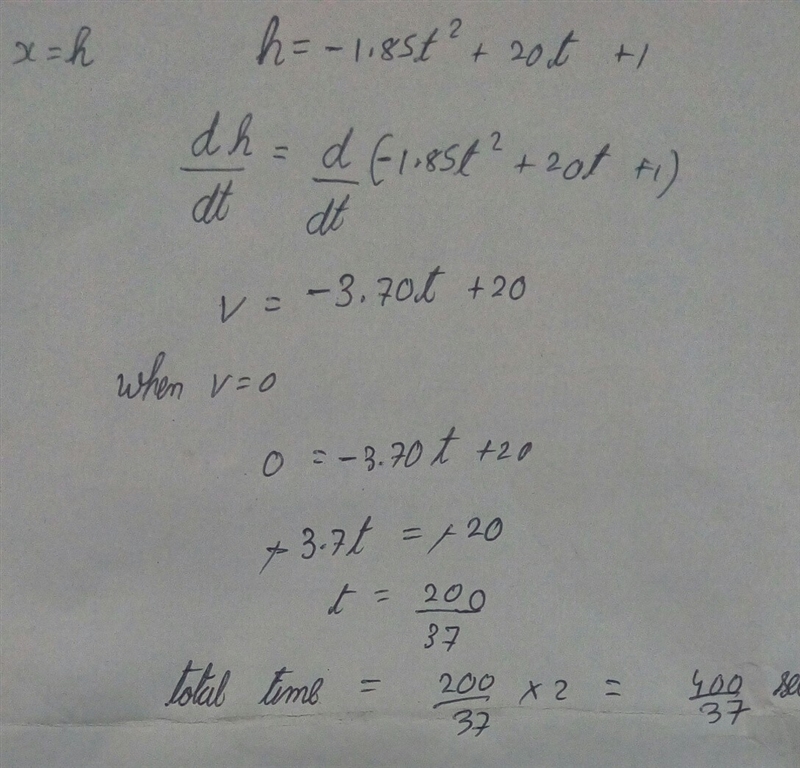 x=h h = -1.85t² + 20t +1
dh/dt = d/dt (-1.85t² + 20t +1)
v = -3.70t +20
when v=0
0 = -3.70t +20
-3.7t = -20
t = 200/37
total time = 200/37 × 2 = 400/37 sec